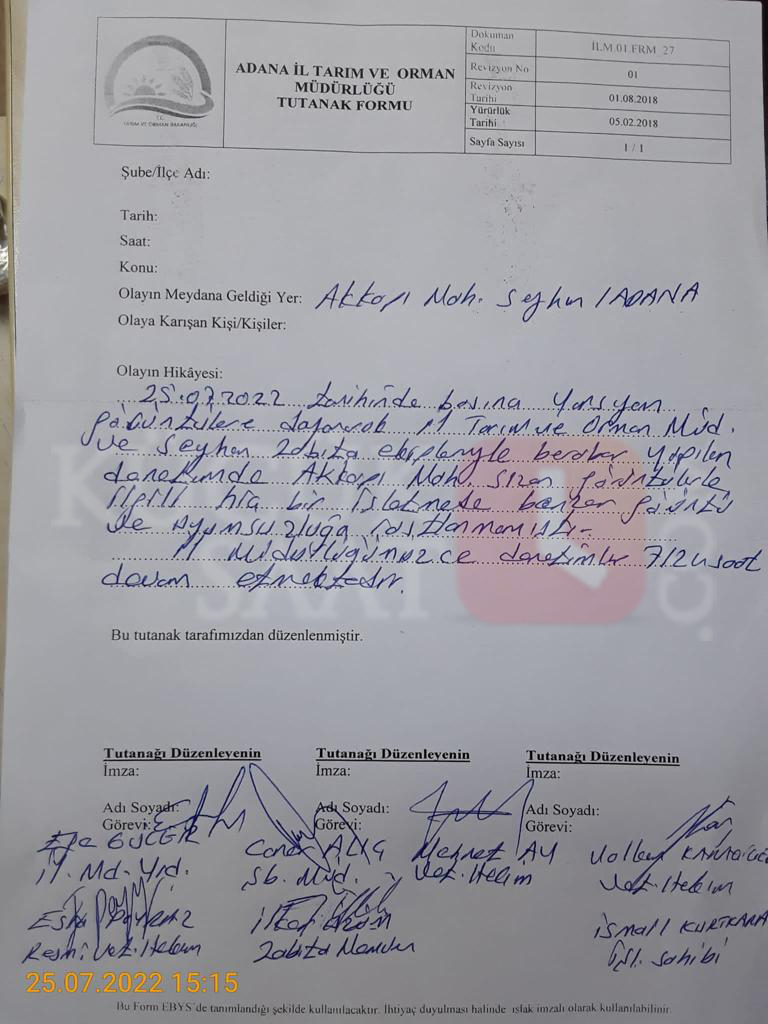 T.C.
TARIM VE ORMAN BAKANLIĞI
ADANA İL TARIM VE ORMAN
MÜDÜRLÜĞÜ
TUTANAK FORMU
Doküman Kodu İLM.01.FRM_27
Revizyon No 01
Revizyon Tarihi 01.08.2018
Yürürlük Tarihi 05.02.2018
Sayfa Sayısı 1 / 1
Şube/İlçe Adı:
Tarih:
Saat:
Konu:
Olayın Meydana Geldiği Yer: Akkapı Mah. Seyhan / ADANA
Olaya Karışan Kişi/Kişiler:
Olayın Hikâyesi:
25.07.2022 tarihinde basına yansıyan
görüntülere dayanarak İl Tarım ve Orman Müd.
ve Seyhan Zabıta ekipleriyle beraber yapılan
denetimde Akkapı Mah. sızan görüntülerle
ilgili hiç bir işletmede benzer görüntü
ve uyumsuzluğa rastlanmamıştır.
İl Müdürlüğümüzce denetimler 7/24 saat
devam etmektedir.
Bu tutanak tarafımızdan düzenlenmiştir.
Tutanağı Düzenleyenin Tutanağı Düzenleyenin Tutanağı Düzenleyenin
İmza: İmza: İmza:
Adı Soyadı: Adı Soyadı: Adı Soyadı:
Görevi: Görevi: Görevi:
Caner Mehmet AY Volkan
İl. Md. Yrd. Şb. Müd. Vet. Hekim Vet. Hekim
İsmail KURTKARA
Resmi Vet. Hekim Zabıta Memuru İşl. Sahibi
25.07.2022 15:15
Bu Form EBYS'de tanımlandığı şekilde kullanılacaktır. İhtiyaç duyulması halinde ıslak imzalı olarak kullanılabilinir.